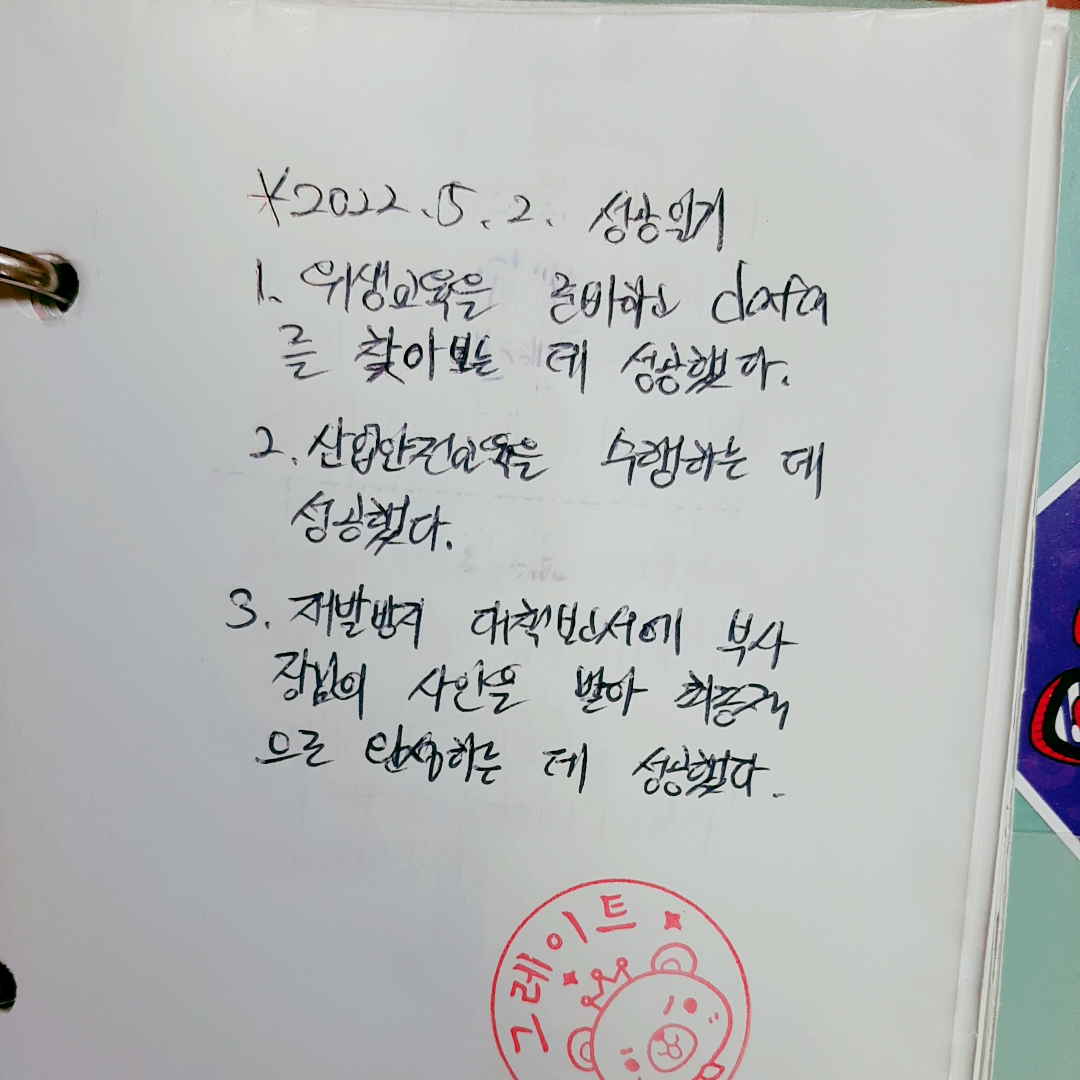 *2022.5.2. 성공일기
1. 위생교육을 준비하고 data
를 찾아보는 데 성공했다.
2. 산업안전교육을 수행하는 데
성공했다.
3. 재발방지 대책보고서에 부사
장님의 사인을 받아 최종적
으로 완성하는 데 성공했다.
그레이트